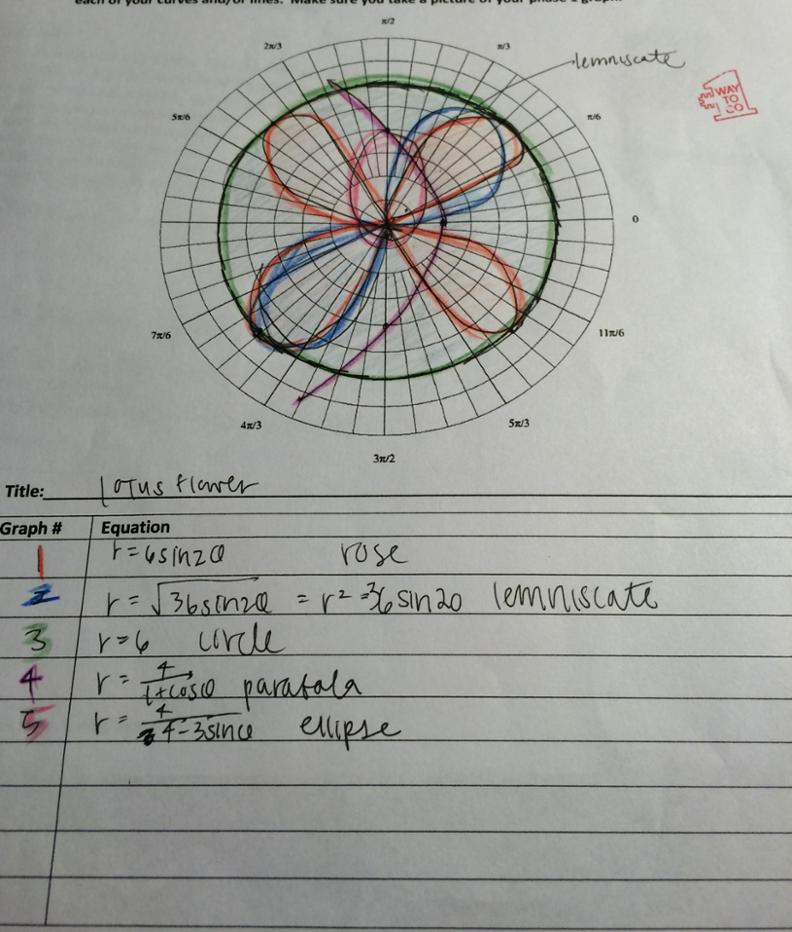 each of your curves and/or lines. Make sure you take a picture of your phase 1 graph.
π/2
2π/3
π/3
lemniscate
WAY
TO
GO
5π/6
π/6
0
7π/6
11π/6
4π/3
5π/3
3π/2
Title: Lotus Flower
Graph # Equation
1 r = 6sin2θ rose
2 r = √36sin2θ = r² = 36sin2θ lemniscate
3 r = 6 circle
4 r = 4/1+cosθ parabola
5 r = 4/4-3sinθ ellipse